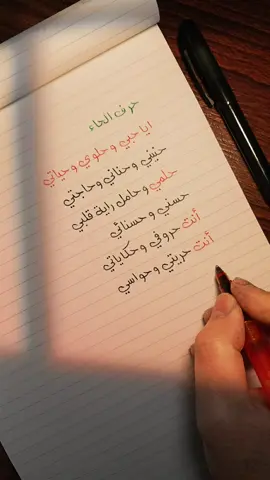 حرف الحاء
ايا حبي و حلوي و حياتي
حنيني و حناني و حاجتي
حلمي و حامل راية قلبي
حسني و حسناتي
أنت حروفي و حكاياتي
أنت حريتي و حواسي